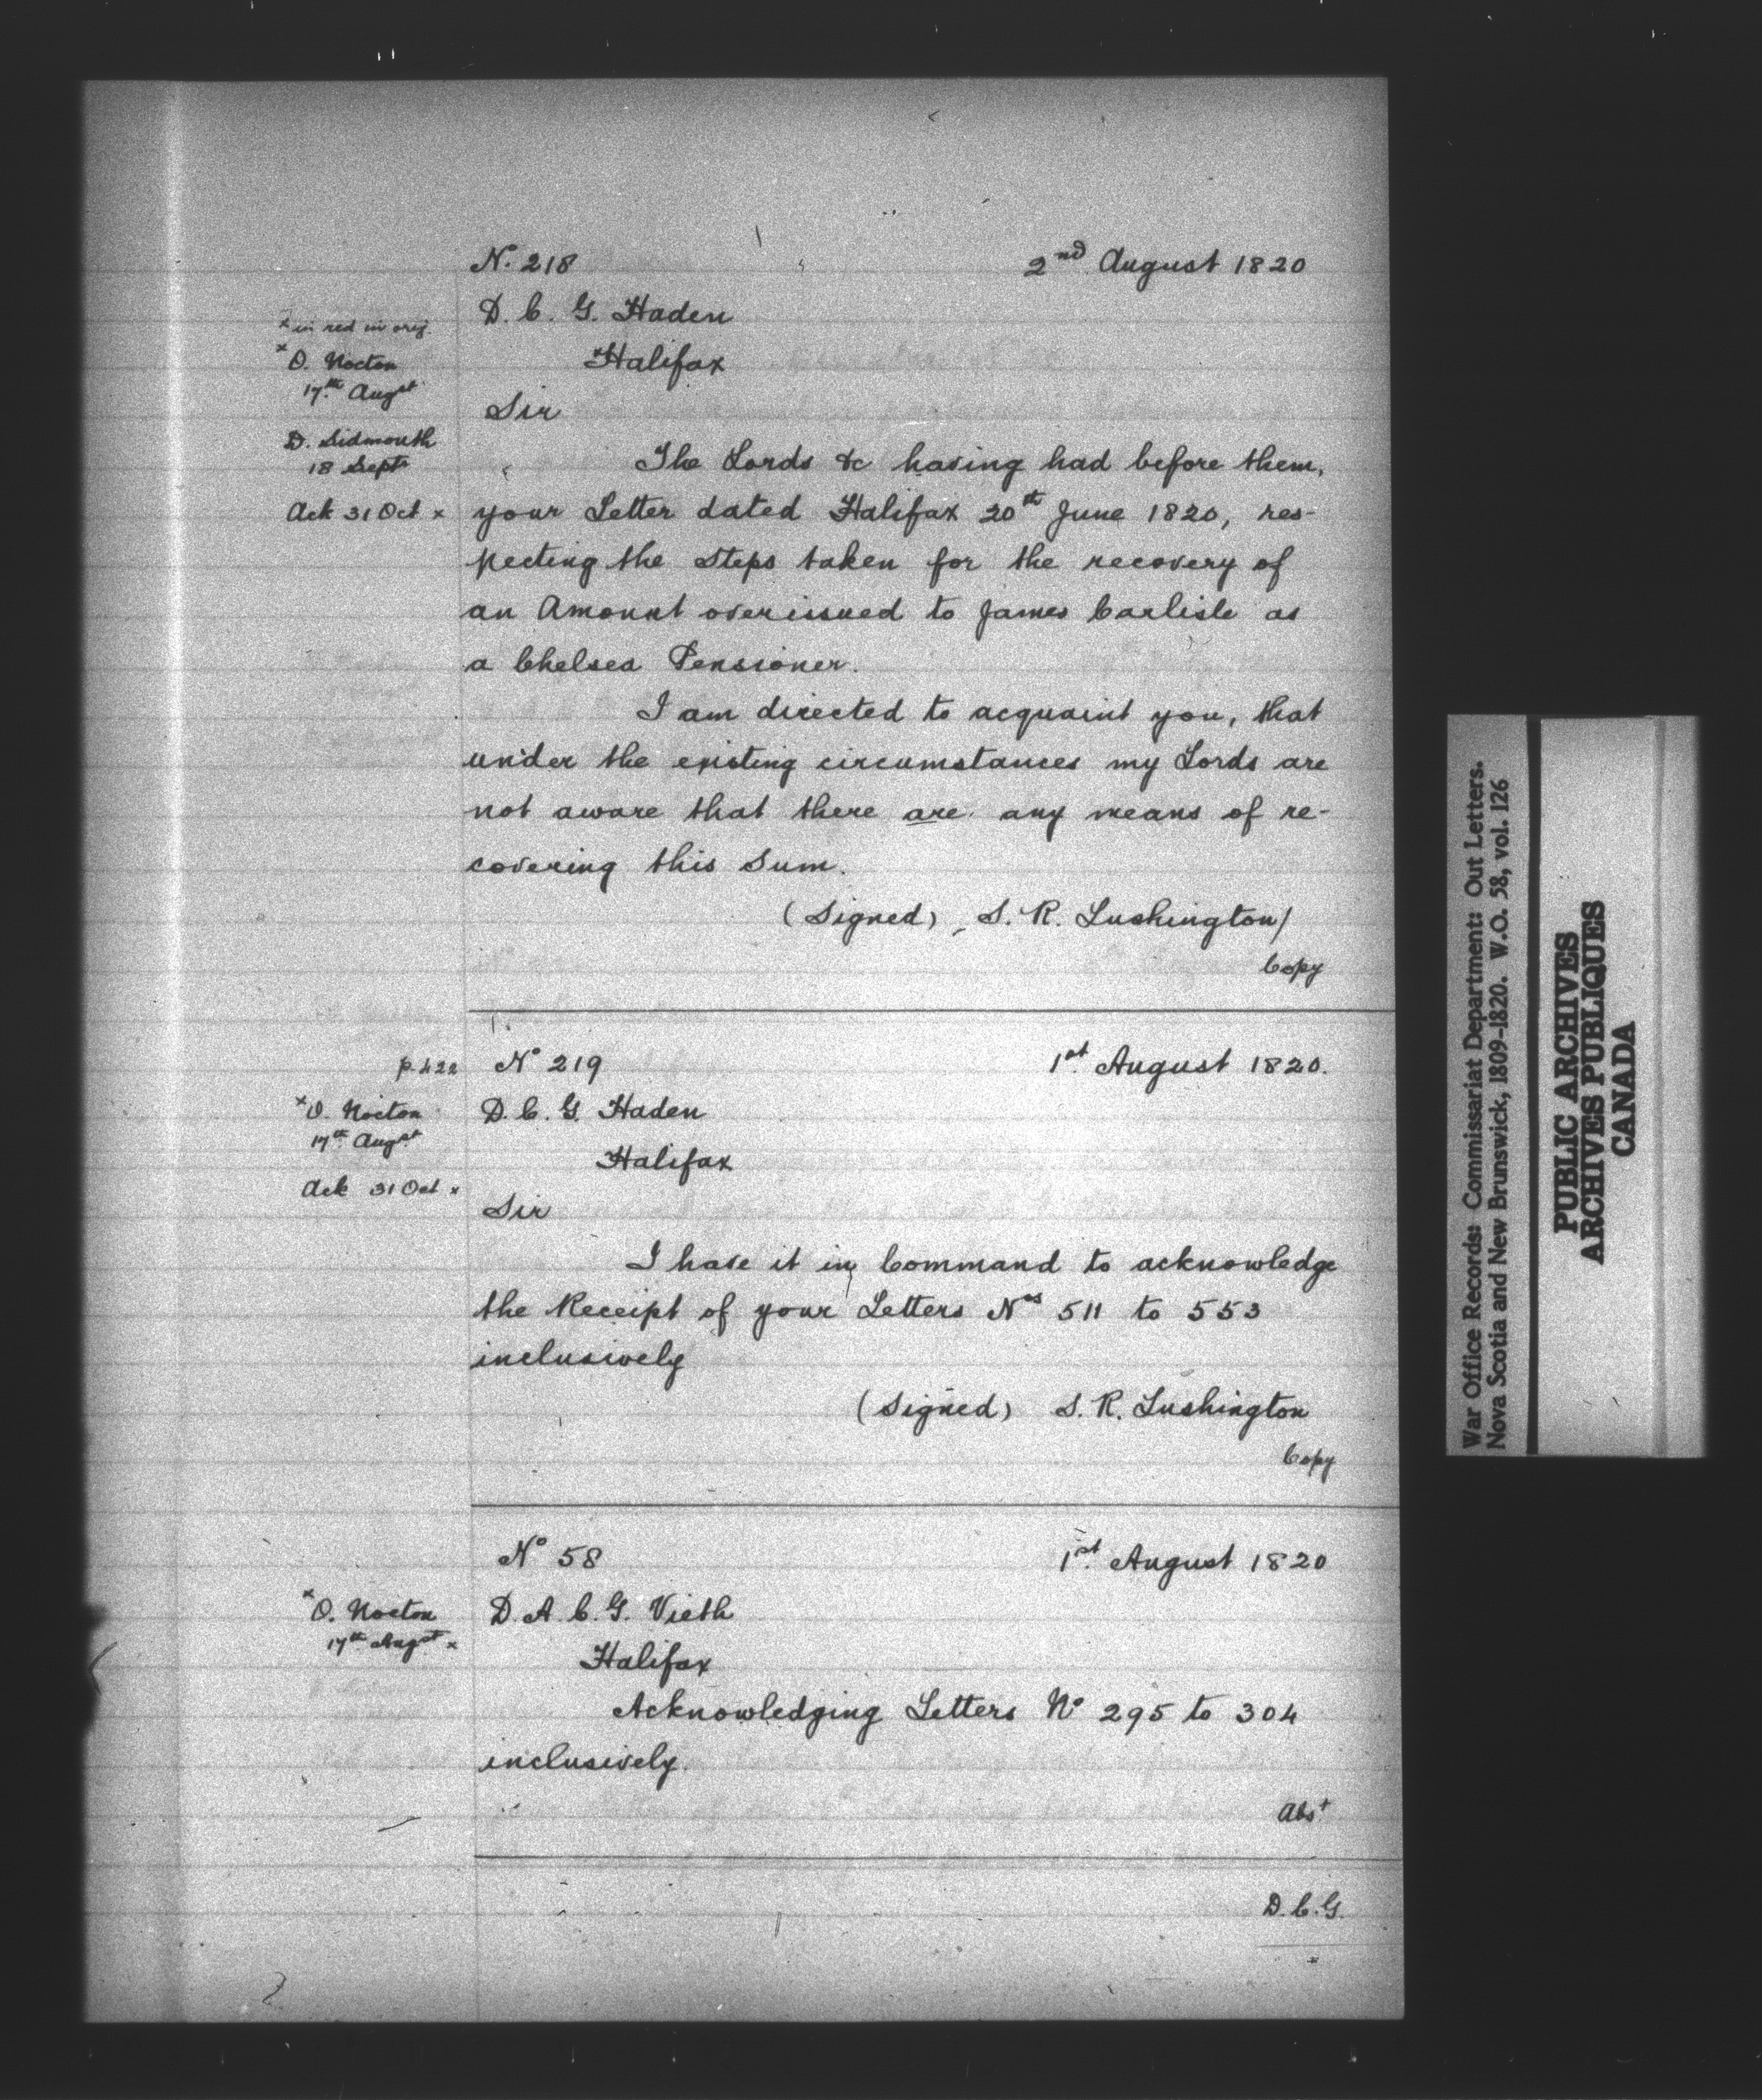 Nº 218 2nd August 1820
D. C. G. Haden
Halifax
Sir
x in red in orig.
x O. Nocton
17th Augst
D. Sidmouth
18 Septr
Ack 31 Oct x
The Lords &c having had before them,
your Letter dated Halifax 20th June 1820, res-
pecting the Steps taken for the recovery of
an Amount overissued to James Carlisle as
a Chelsea Pensioner.
I am directed to acquaint you, that
under the existing circumstances my Lords are
not aware that there are any means of re-
covering this Sum.
(Signed) S. R. Lushington/
Copy
p. 422 Nº 219 1st August 1820.
x O. Nocton
17th Augst
Ack 31 Oct x
D. C. G. Haden
Halifax
Sir
I have it in Command to acknowledge
the Receipt of your Letters Nos 511 to 553
inclusively
(Signed) S. R. Lushington
Copy
Nº 58 1st August 1820
x O. Nocton
17th Augst x
D. A. C. G. Vieth
Halifax
Acknowledging Letters Nº 295 to 304
inclusively.
Abst
D. C. G.
War Office Records: Commissariat Department: Out Letters.
Nova Scotia and New Brunswick, 1809-1820. W.O. 58, vol. 126
PUBLIC ARCHIVES
ARCHIVES PUBLIQUES
CANADA